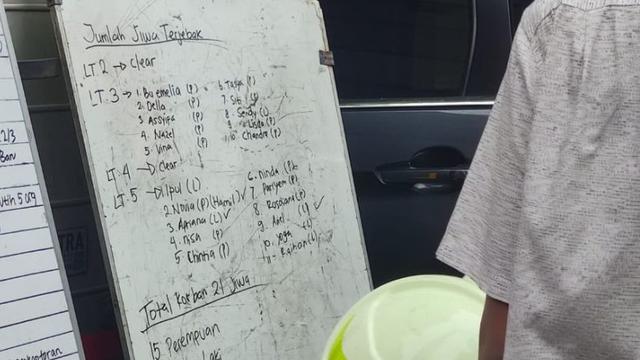 Jumlah Jiwa Terjebak
LT. 2 → Clear
LT. 3 → 1. Bu emelia (P)
2. Della (P)
3 Assyifa (P)
4. Nazel (P)
5. Vina (P)
6. Tasya (P)
7. Siti (P)
8. Sendy (L)
9 Lisda (P)
10 Chandra (P)
LT. 4 → Clear
LT. 5 → 1. Ipul (L)
2. Novia (P) (Hamil) ✓
3. Apriana (L) ✓
4. nisa (P)
5 Chintia (P)
6. ninda (P)
7. Pariyem (P)
8. Rosdiana (P)
9. Adel
10. Yoga
11. Raihan (L)
Total Korban 21 Jiwa
15 Perempuan
laki
2/3
Ban
TRA